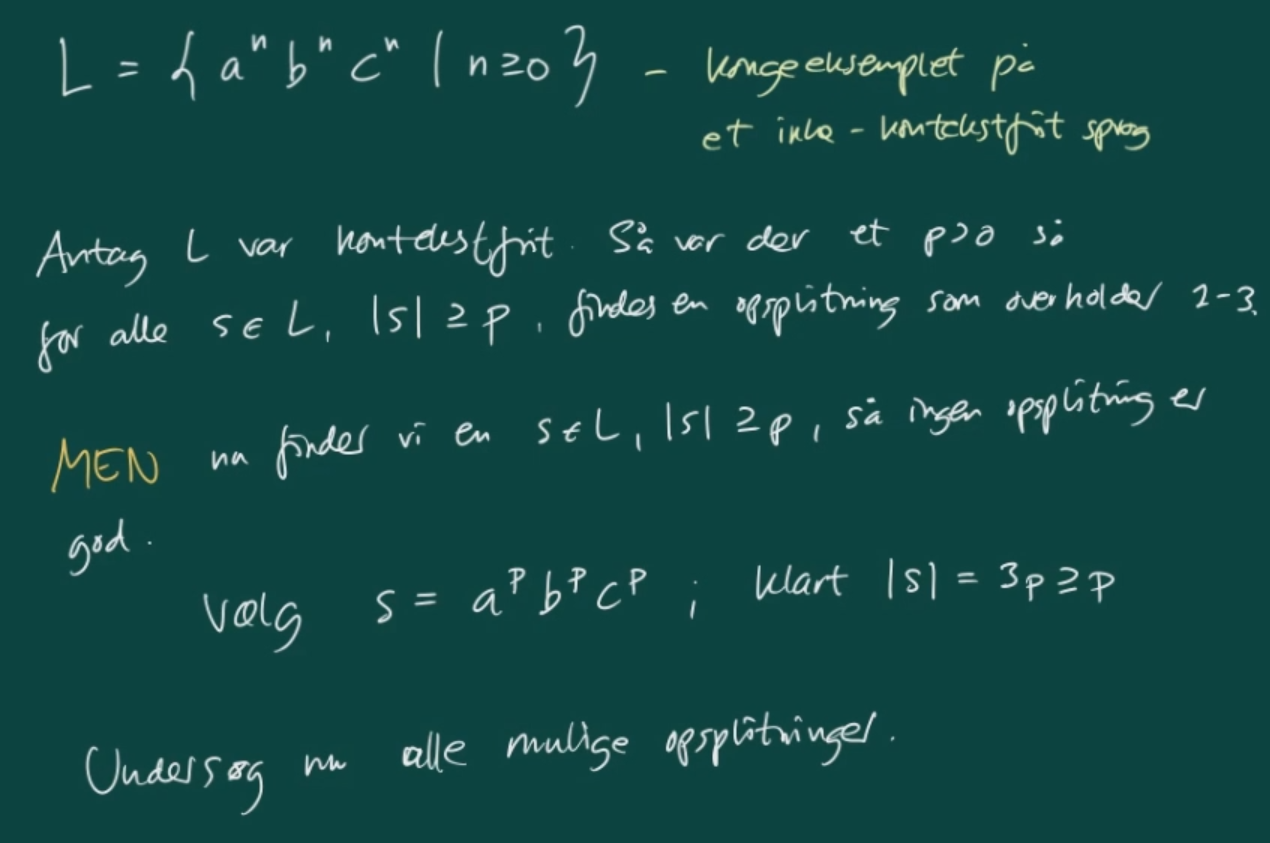 L = { aⁿ bⁿ cⁿ | n ≥ 0 } - kongeeksemplet på
et ikke-kontekstfrit sprog
Antag L var kontekstfrit. Så var der et p>0 så
for alle s ∈ L, |s| ≥ p, findes en opsplitning som overholder 1-3.
MEN nu finder vi en s ∈ L, |s| ≥ p, så ingen opsplitning er
god.
Vælg s = aᵖ bᵖ cᵖ ; klart |s| = 3p ≥ p
Undersøg nu alle mulige opsplitninger.